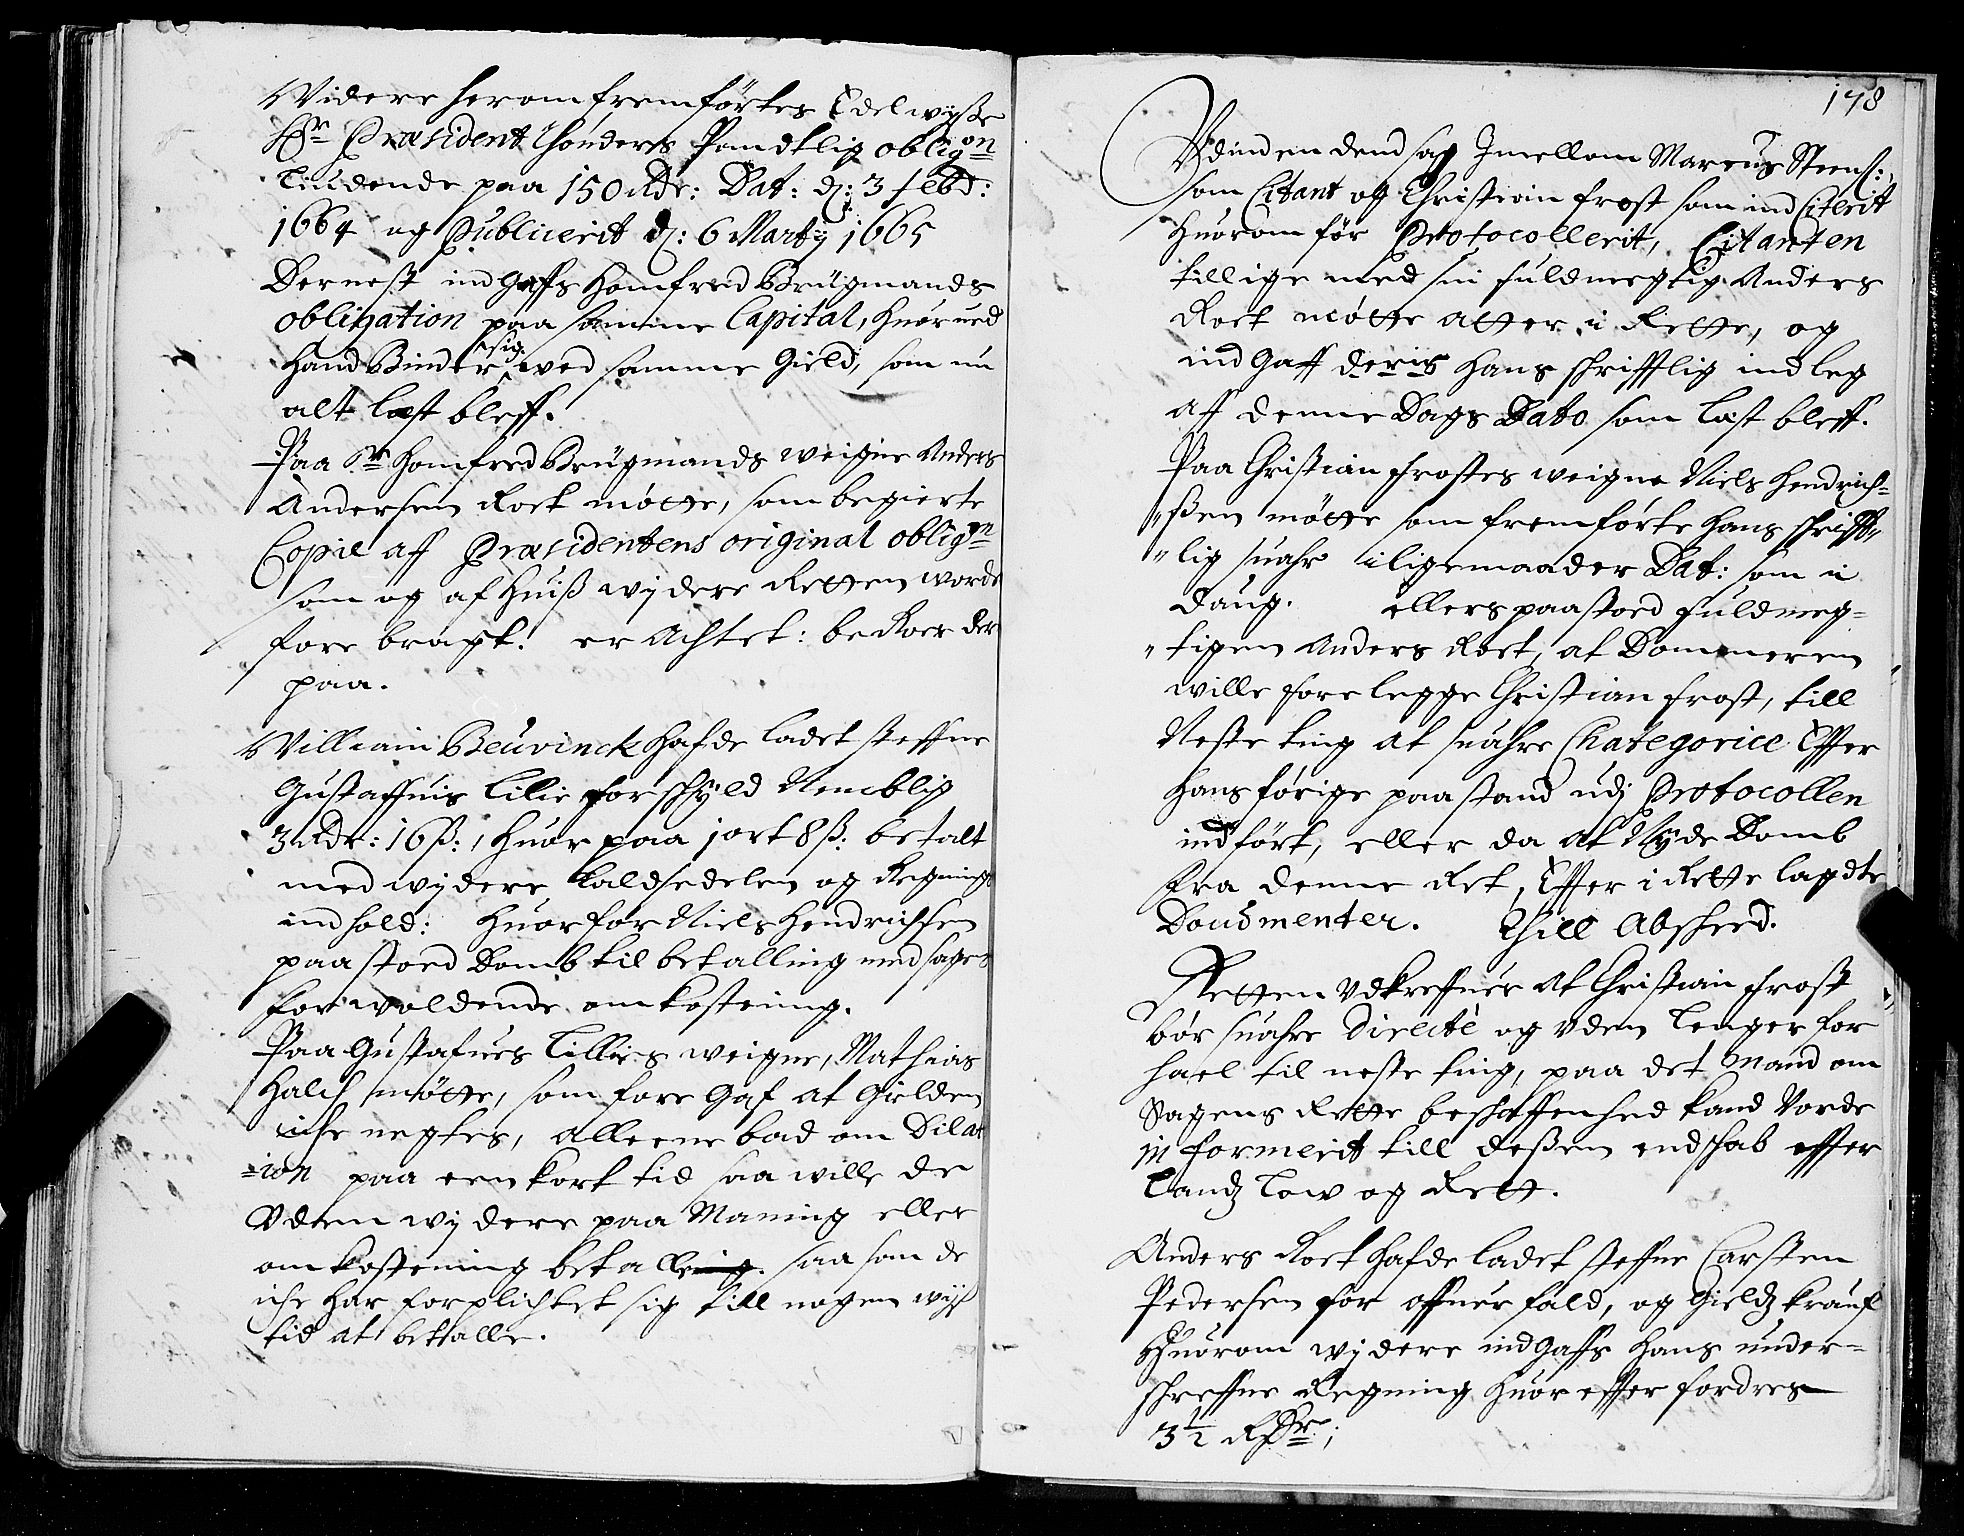 Widere herom fremførtes Edelwyße
Hr Præsident Thønders Pandtlig obligon
liudende paa 150 Rdr: Dat: d: 3 febr:
1664 og Publicerit d: 6 Marty 1665
Dernest indgaffs Homfred Brügmands
obligation paa samme Capital, huorued
hand Binder sig wed samme Gield, som nu
alt læst bleff.
Paa Sr Homfred Brügmands weigne Anders
Andersen Roet møtte, som begierte
Copie aff Præsidentens original obligon
som og af huiß wydere Retten worde
fore bragt. er Achtet: beRoer der
paa.
Williain Beuvinck hafde ladet steffne
Gustaffuis Lilie for schyld Nemblig
3 Rdr: 16 ß:, huor paa 1 ort 8 ß: betalt
med wydere Kaldsedelen og Regnings
indhold: huorfor Niels Hendrichsen
paastoed Domb til betalling med sagens
forwoldende omkostning.
Paa Gustafues Lillies weigne, Mathias
Halch møtte, som fore Gaf at Gielden
iche negtes, alleene bad om Dilat
=ion paa een kort tid saa wille de
Uden wydere paa Maning eller
omkostening betalle saa som de
iche har forplichtet sig till nogen wiß
tid at betalle.
178
Udinden dend sag Imellom Marcus Steenß:
som Citant og Christian frost som ind Citerit
huorom før Protocollerit, Citanten
tillige med sin fuldmegtig Anders
Roet møtte atter i Rette, og
indGaff deris hans schrifftlig indleg
af denne Dags Dato som læst bleff.
Paa Christian frostes weigne Niels Hendrich=
"ßen møtte som fremførte hans schrifft"
"lig suahr iligemaader Dat: som i
Daug. ellers paastoed fuldmeg=
"tigen Anders Roet, at Dommeren
wille forelegge Christian frost, till
Neste ting at suahre Chategorice Effter
hans førige paastand udj Protocollen
indført, eller da at Nyde Domb
fra denne Ret, Effter i Rette lagdte
Doucmenter. Thill Absheed.
Retten Udkreffuer at Christian frost
bør suahre Directè og uden lenger for
hael til neste ting, paa det Mand om
Sagens Rette beschaffenhed kand Vorde
informerit till deßen endschab effter
Landz low og Rett.
Anders Roet hafde ladet steffne Carsten
Pedersen for offuerfald, og Gieldz krauf
Huorom wydere indgaffs hans under=
schreffne Regning huor effter fordres
3 1/2 Rdr;